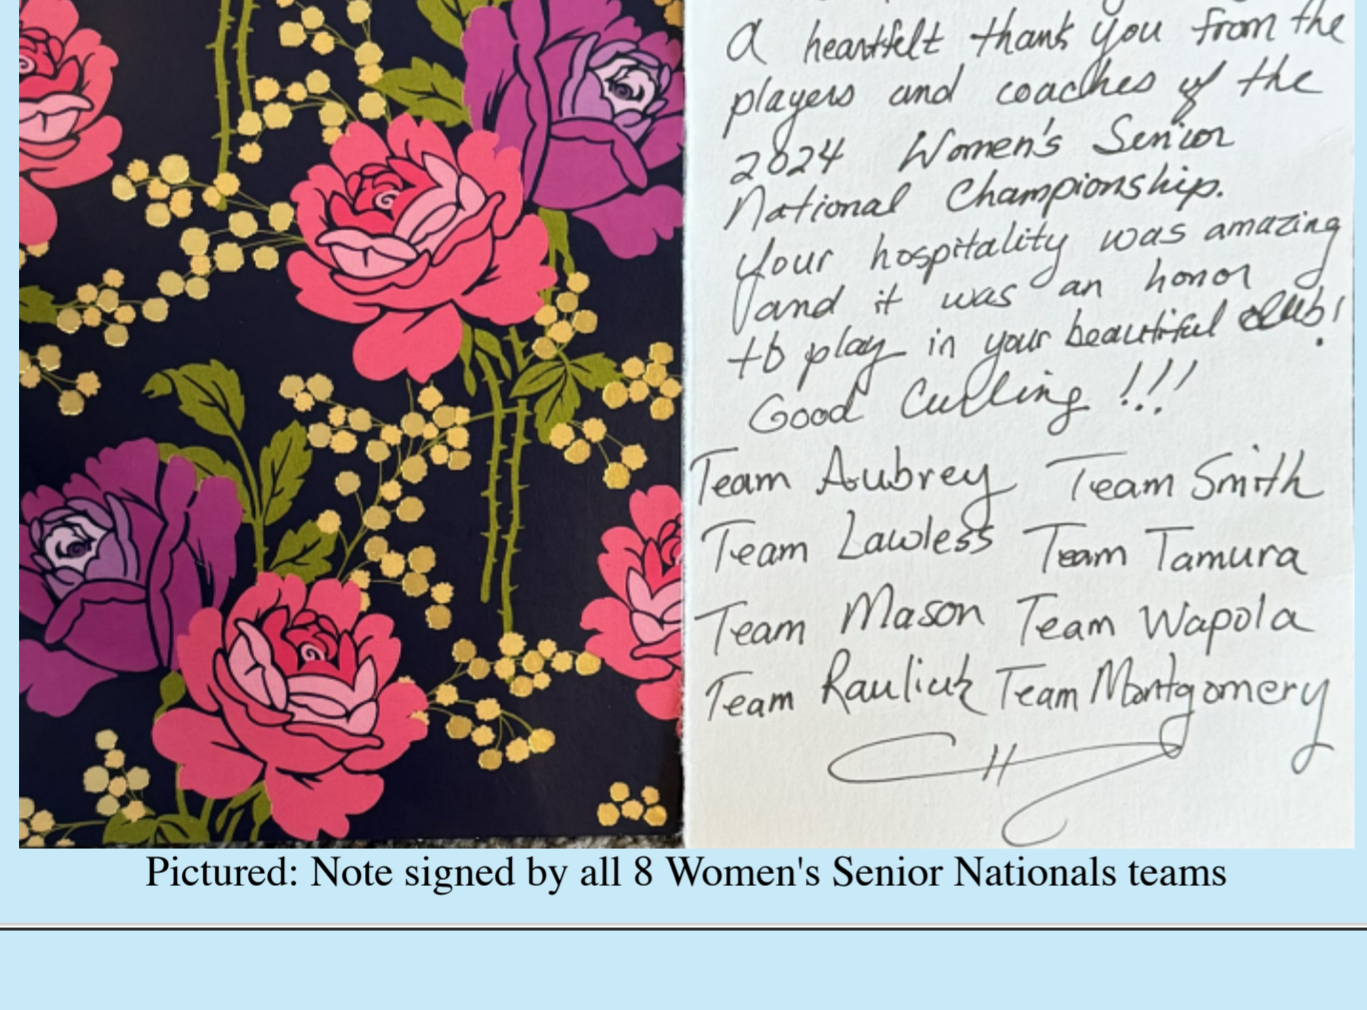 A heartfelt thank you from the
players and coaches of the
2024 Women's Senior
National Championship.
Your hospitality was amazing
and it was an honor
to play in your beautiful club!
Good Curling !!!
Team Aubrey Team Smith
Team Lawless Team Tamura
Team Mason Team Wapola
Team Rauliuk Team Montgomery
Pictured: Note signed by all 8 Women's Senior Nationals teams